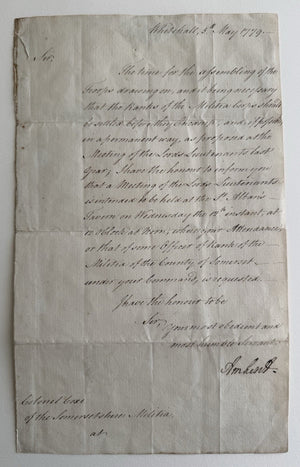 Whitehall, 5th May 1779.
Sir,
The time for the assembling of the
Troops drawing on, and it being necessary
that the Ranks of the Militia Corps should
be settled before they Encamp, and if possible
in a permanent way, as proposed at the
Meeting of the Lords Lieutenants last
Year; I have the honor to inform you
that a Meeting of the Lords Lieutenants
is intended to be held at the St. Albans
Tavern on Wednesday the 12th instant, at
o'Clock at Noon; where your Attendance
or that of some Officer of Rank of the
Militia of the County of Somerset
under your Command, is requested.
I have the honour to be
Sir,
Your most obedient and
most humble Servant
Amherst
Colonel Coxe
of the Somersetshire Militia
at